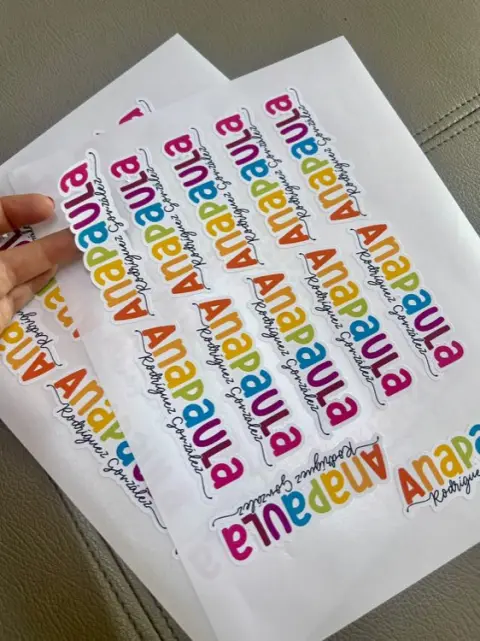 AnapaULa
Rodríguez González
AnapaULa
Rodríguez González
AnapaULa
Rodríguez González
AnapaULa
Rodríguez González
AnapaULa
Rodríguez González
AnapaULa
Rodríguez González
AnapaULa
Rodríguez González
AnapaULa
Rodríguez González
AnapaULa
Rodríguez González
AnapaULa
Rodríguez González
AnapaULa
Rodríguez González
Anapa
Rodrígue
Ana
Anapa
Rodríguez González